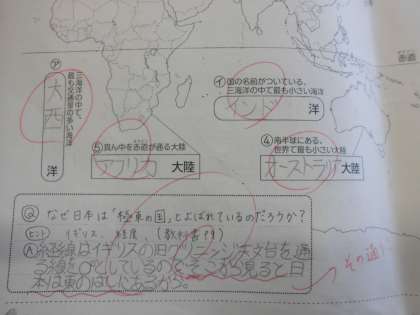 赤道
㋐
三海洋の中で、
最も交通量の多い海洋
大西
洋
㋑ 国の名前がついている、
三海洋の中で最も小さい海洋
インド 洋
⑤ 真ん中を赤道が通る大陸
アフリカ 大陸
④ 南半球にある、
世界で最も小さい大陸
オーストラリア 大陸
Ⓠ なぜ日本は「極東の国」とよばれているのだろうか?
ヒント イギリス、経度、(教科書P9)
Ⓐ 経線はイギリスの旧グリニッジ天文台を通
る線を0としているので、そこから見ると日
本は東のはしにあるから。
その通り